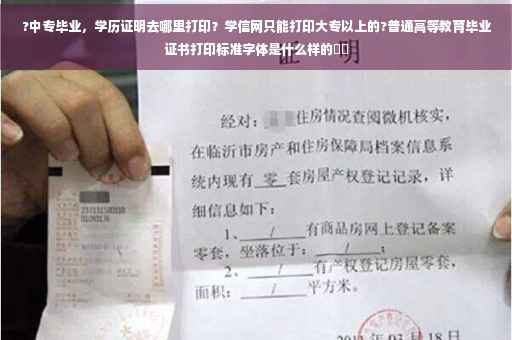 ?中专毕业，学历证明去哪里打印？学信网只能打印大专以上的?普通高等教育毕业
证书打印标准字体是什么样的
证 明
经对：住房情况查阅微机核实，
在临沂市房产和住房保障局档案信息系
统内现有 零 套房屋产权登记记录，详
细信息如下：
1、 / 有商品房网上登记备案
零套，坐落位于： / ；
2、 / 有产权登记房屋零套，
面积： / 平方米。